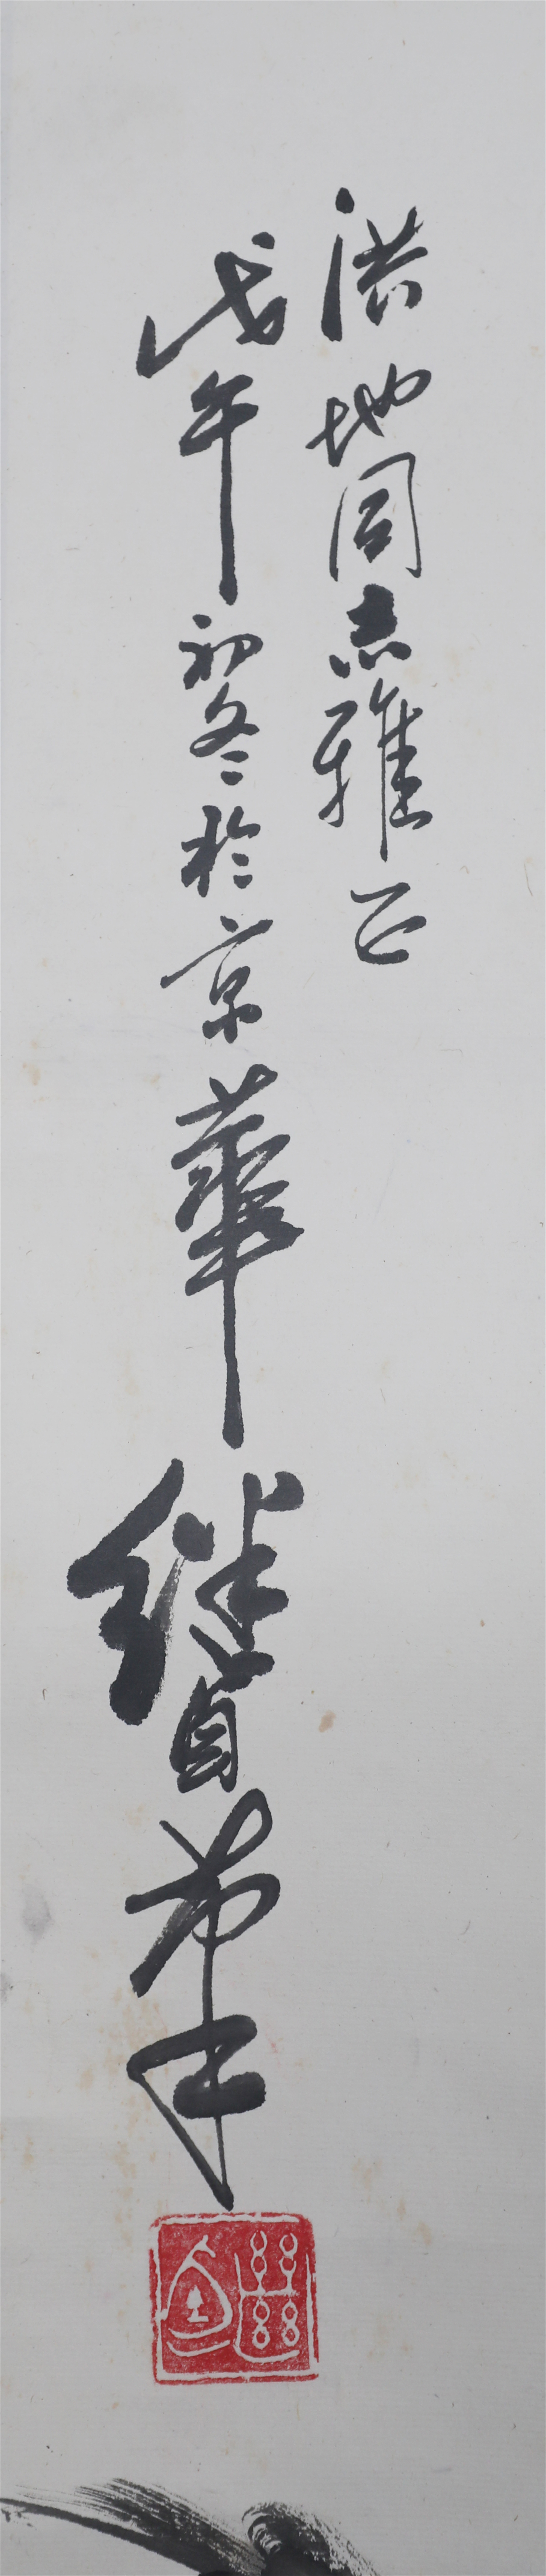 洪地同志雅正
戊午初冬於京華继卣
繼卣